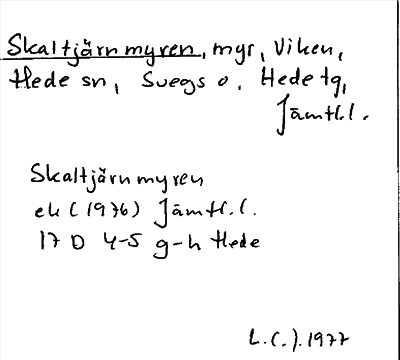 Skaltjärnmyren, myr, Viken,
Hede sn, Svegs o, Hede tg,
Jämtl.l.
Skaltjärnmyren
ek (1976) Jämtl.l.
17 D 4-5 g-h Hede
L.C.J. 1977